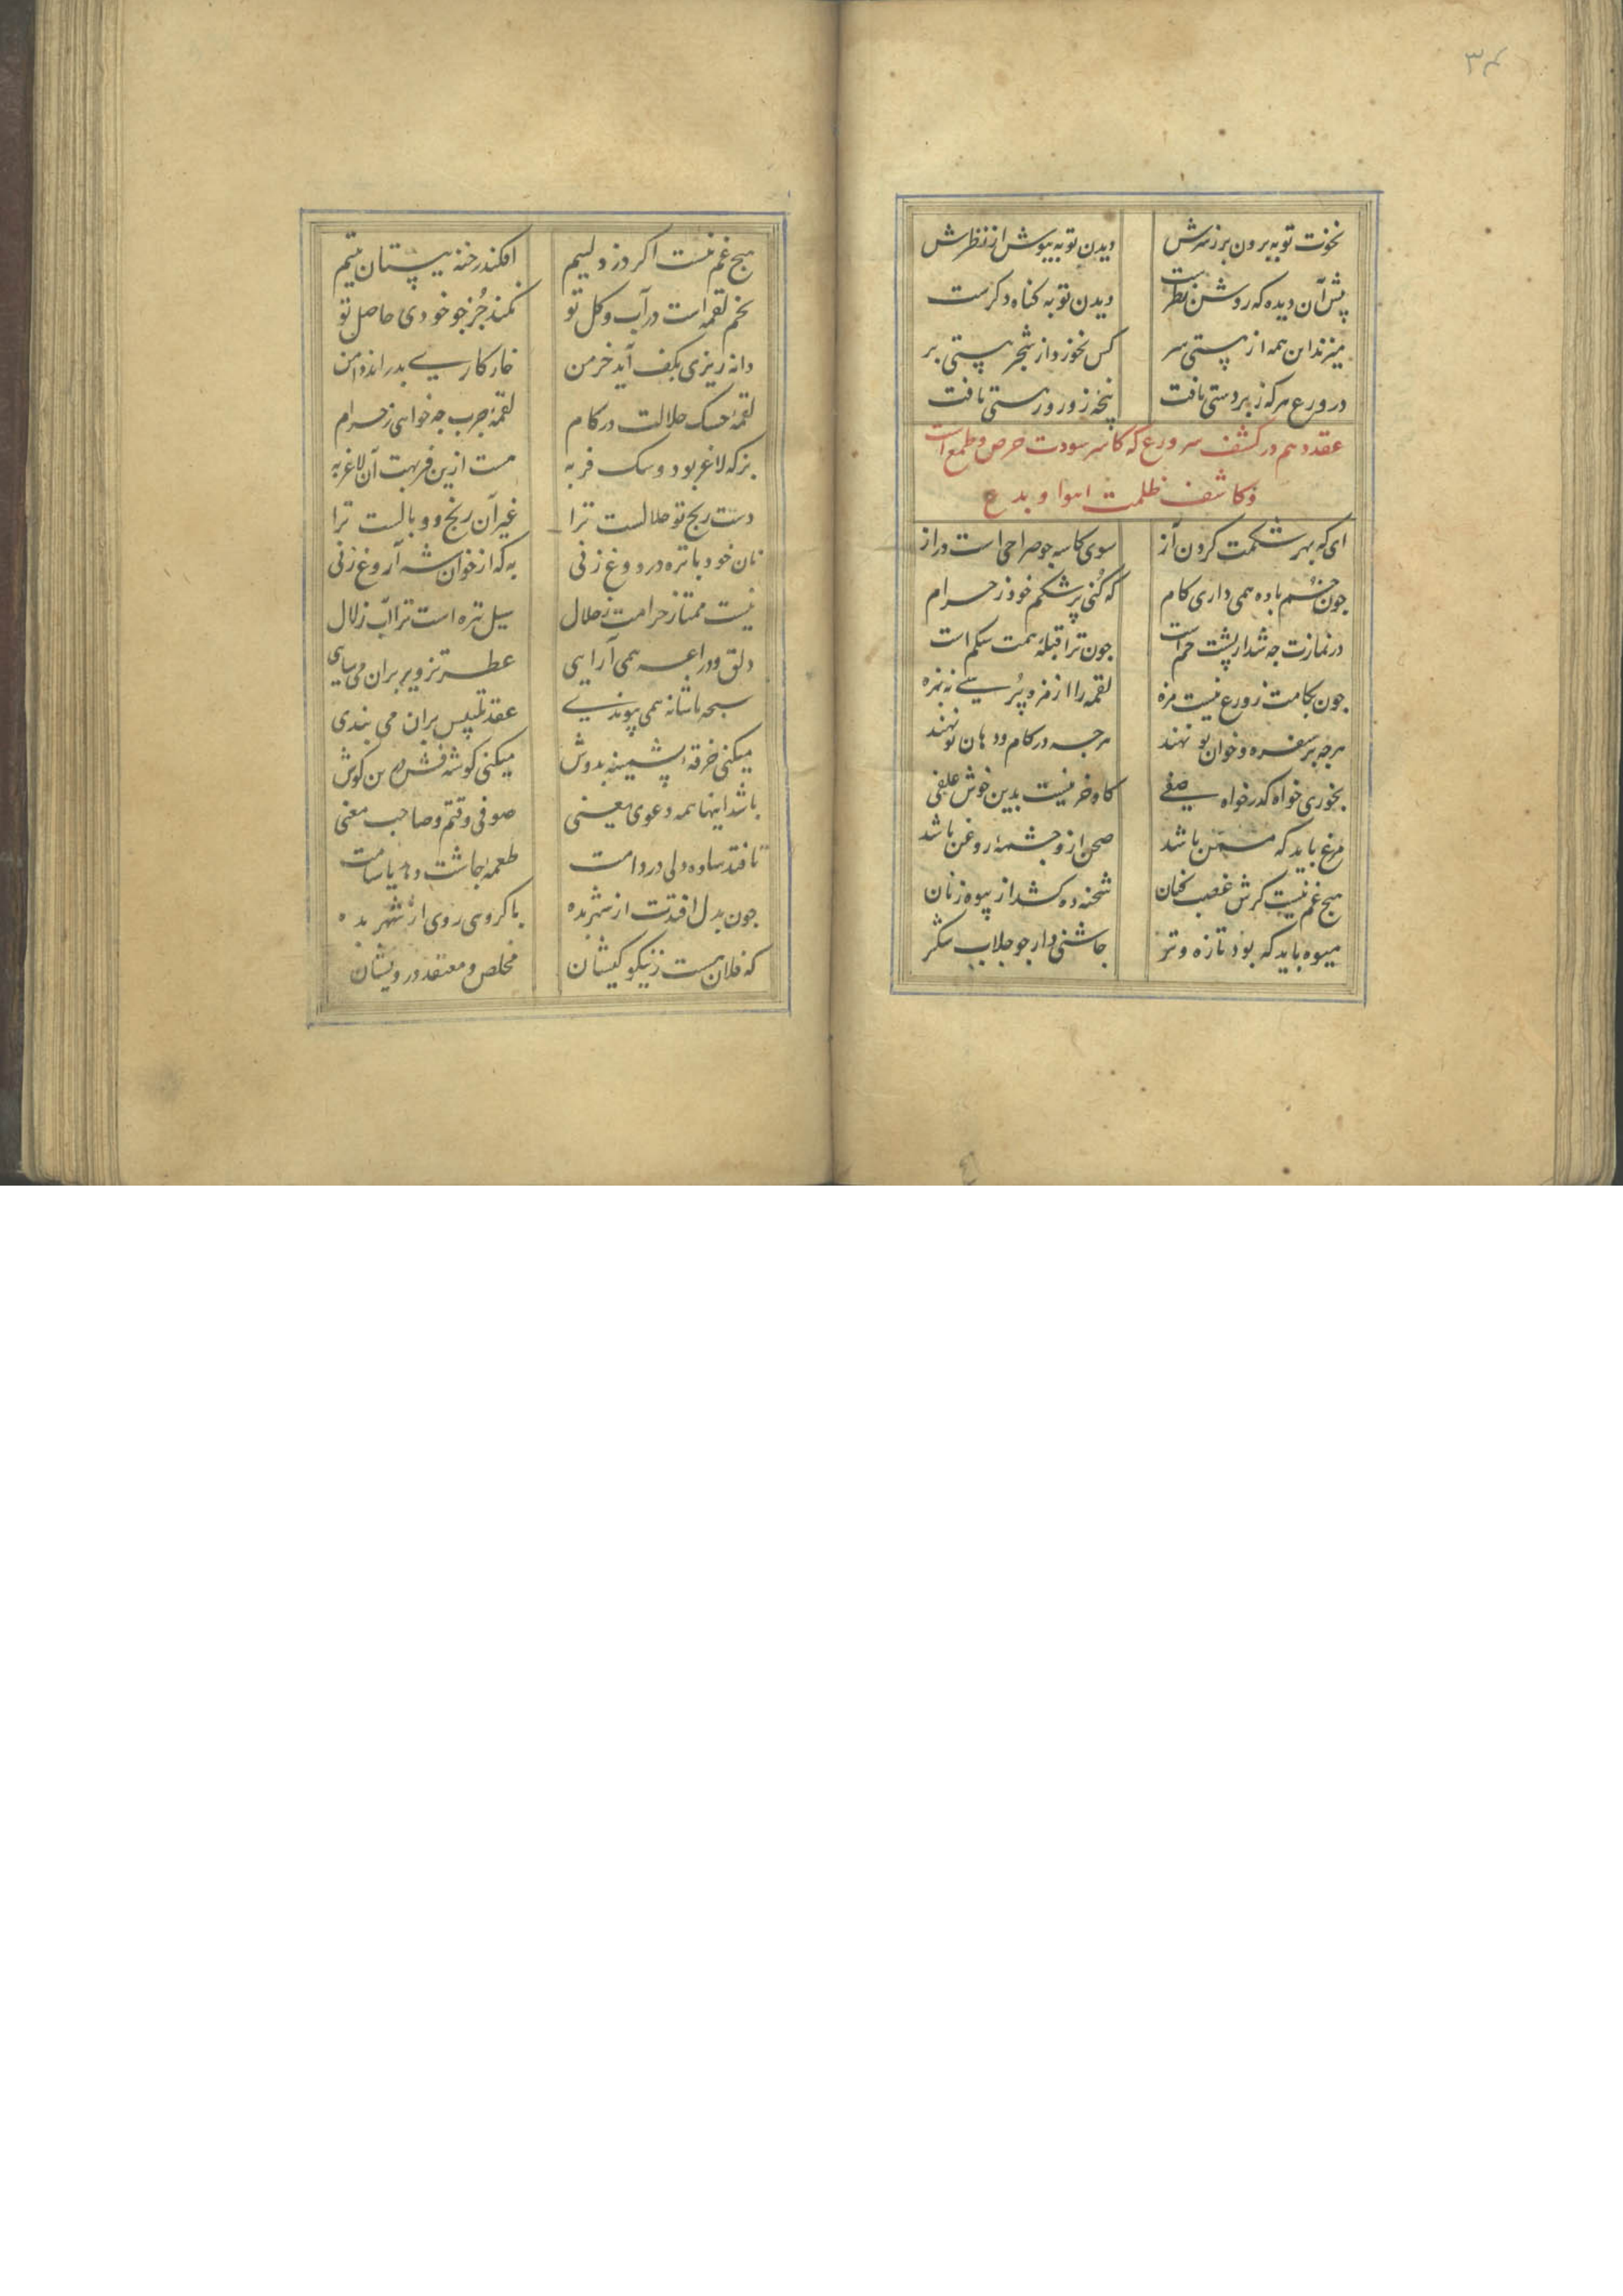 ۳۴
نخوت توبه برون بر ز سرش دیدن توبه بپوش از نظرش
پیش آن دیده که روشن نظرست دیدن توبه کناه دکرست
میزند این همه از هستی سر کس نخورد از شجر هستی بر
در ورع هر که زبردستی یافت پنجه زور ور هستی تافت
عقد دهم در کشف سر ورع که کاسر سودت حرص و طمع است
و کاشف ظلمت اهوا و بدع
ای که بهر شکمت کردن آز سوی کاسه جو صراحی است دراز
جون خم باده همی داری کام که کنی پر شکم خود ز حرام
در نمازت جه شد ار پشت خم است جون ترا قبله همت شکم است
جون بکامت ز ورع نیست مزه لقمه را از مزه پرسی نه بزه
هرجه بر سفره و خوان تو نهند هرجه در کام و دهان تو نهند
بخوری خواه کدر خواه صفی کاه خر نیست بدین خوش علفی
مرغ باید که مسمن باشد صحن ازو جشمهٔ روغن باشد
هیج غم نیست کرش غصب کنان شحنه ده کشد از بیوه زنان
میوه باید که بود تازه و تر جاشنی دار جو جلاب شکر
هیج غم نیست اکر دزد لئیم افکند رخنه ببستان یتیم
تخم لقمه است در آب و کل تو نکند جز جو خودی حاصل تو
دانه ریزی بکف آید خرمن خار کاری بدراند دامن
لقمهٔ خشک حلالت در کام لقمهٔ جرب جه خواهی ز حرام
بز که لاغر بود و سک فربه هست ازین فربهت آن لاغر به
دست رنج تو حلالست ترا غیر آن رنج و وبالست ترا
نان خود با تره و دوغ زنی به که از خوان شه آروغ زنی
نیست ممتاز حرامت ز حلال سیل تیره است ترا آب زلال
دلق و دراعه همی آرایی عطر تزویر بران می سایی
سبحه با شانه همی پیوندی عقد تلبیس بران می بندی
میکنی خرقهٔ پشمینه بدوش میکنی کوشه فش در بن کوش
باشد اینها همه دعوی یعنی صوفی وقتم و صاحب معنی
تا فتد ساده دلی در دامت طعمهٔ جاشت دهد یا شامت
جون بدل افتدت از شهر بده با کروهی روی از شهر بده
که فلان هست ز نیکو کیشان مخلص و معتقد درویشان